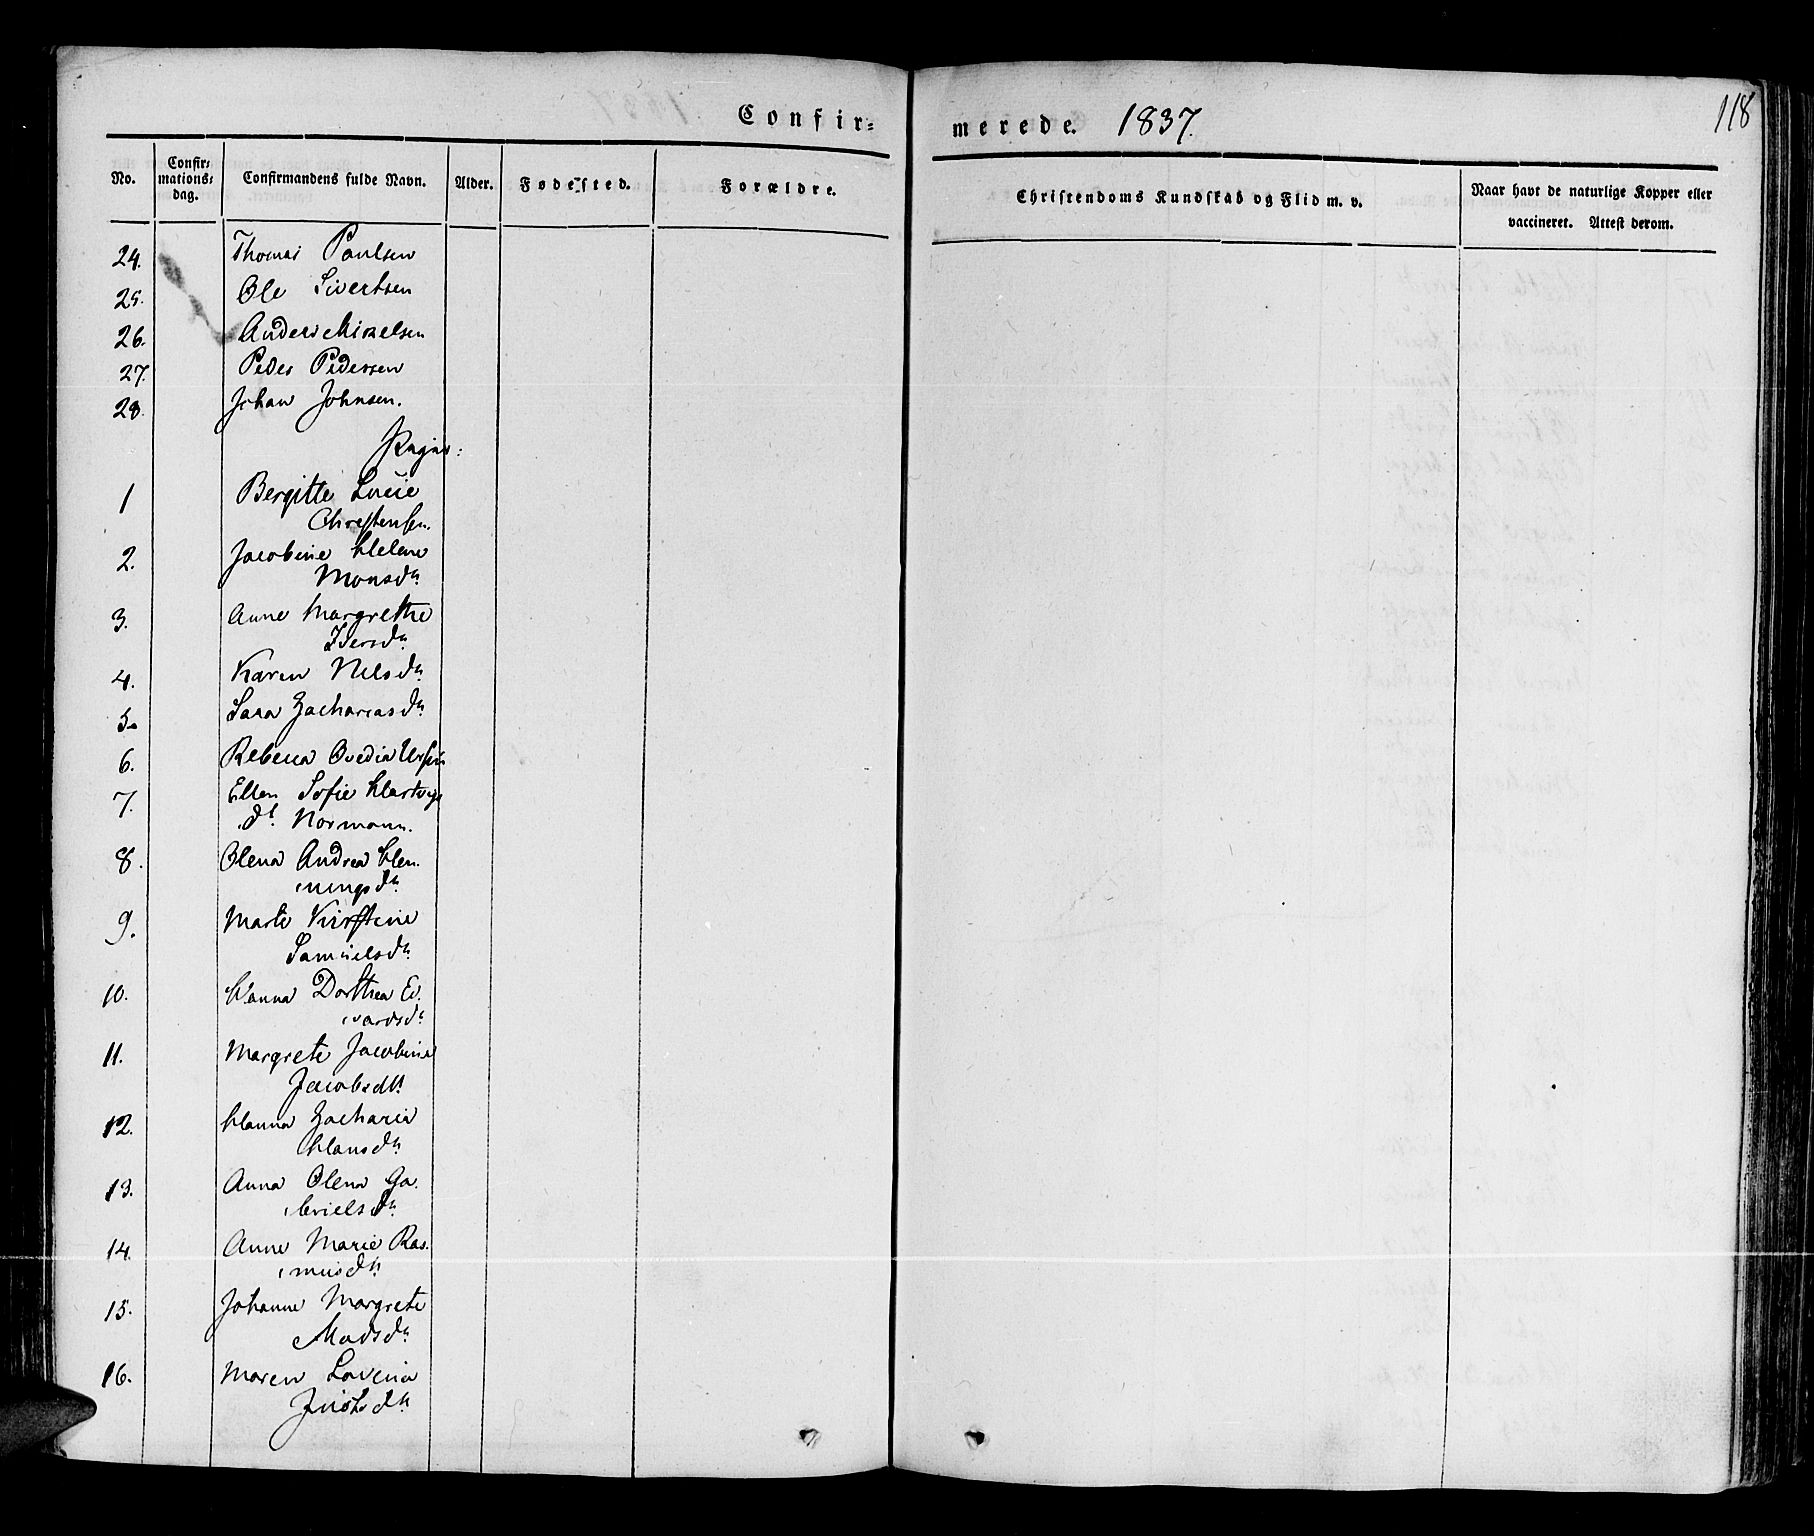 Confir=
merede. 1837.
118
No.
Confir=
mations=
dag.
Confirmandens fulde Navn.
Alder.
Fødested.
Forældre.
Christendoms Kundskab og Flid m. v.
Naar havt de naturlige Kopper eller
vaccineret. Attest derom.
24. Thomas Paulsen
25. Ole Sivertsen
26. Anders Mikelsen
27. Peder Pedersen
28. Johan Johnsen.
Piger:
1 Bergitte Lucie
Christensen.
2. Jacobine Helene
Monsdtr
3. Anne Margrethe
Iversdtr
4. Karen Nilsdtr
5. Sara Zachariasdtr
6. Rebecca Ovedia Ursin
7. Ellen Sofie Hartvigs
dtr Normann.
8. Olena Andrea Hen.
ningsdtr
9. Marte Kirstine
Samuelsdtr
10. Hanna Dorthea Ed.
vardsdtr
11. Margrete Jacobine
Jacobsdtr
12. Hanna Zacharia
Hansdtr
13. Anna Olena Ga.
brielsdtr
14. Anne Marie Ras.
musdtr
15. Johanne Margrete
Madsdtr
16. Maren Lovena
Justsdtr